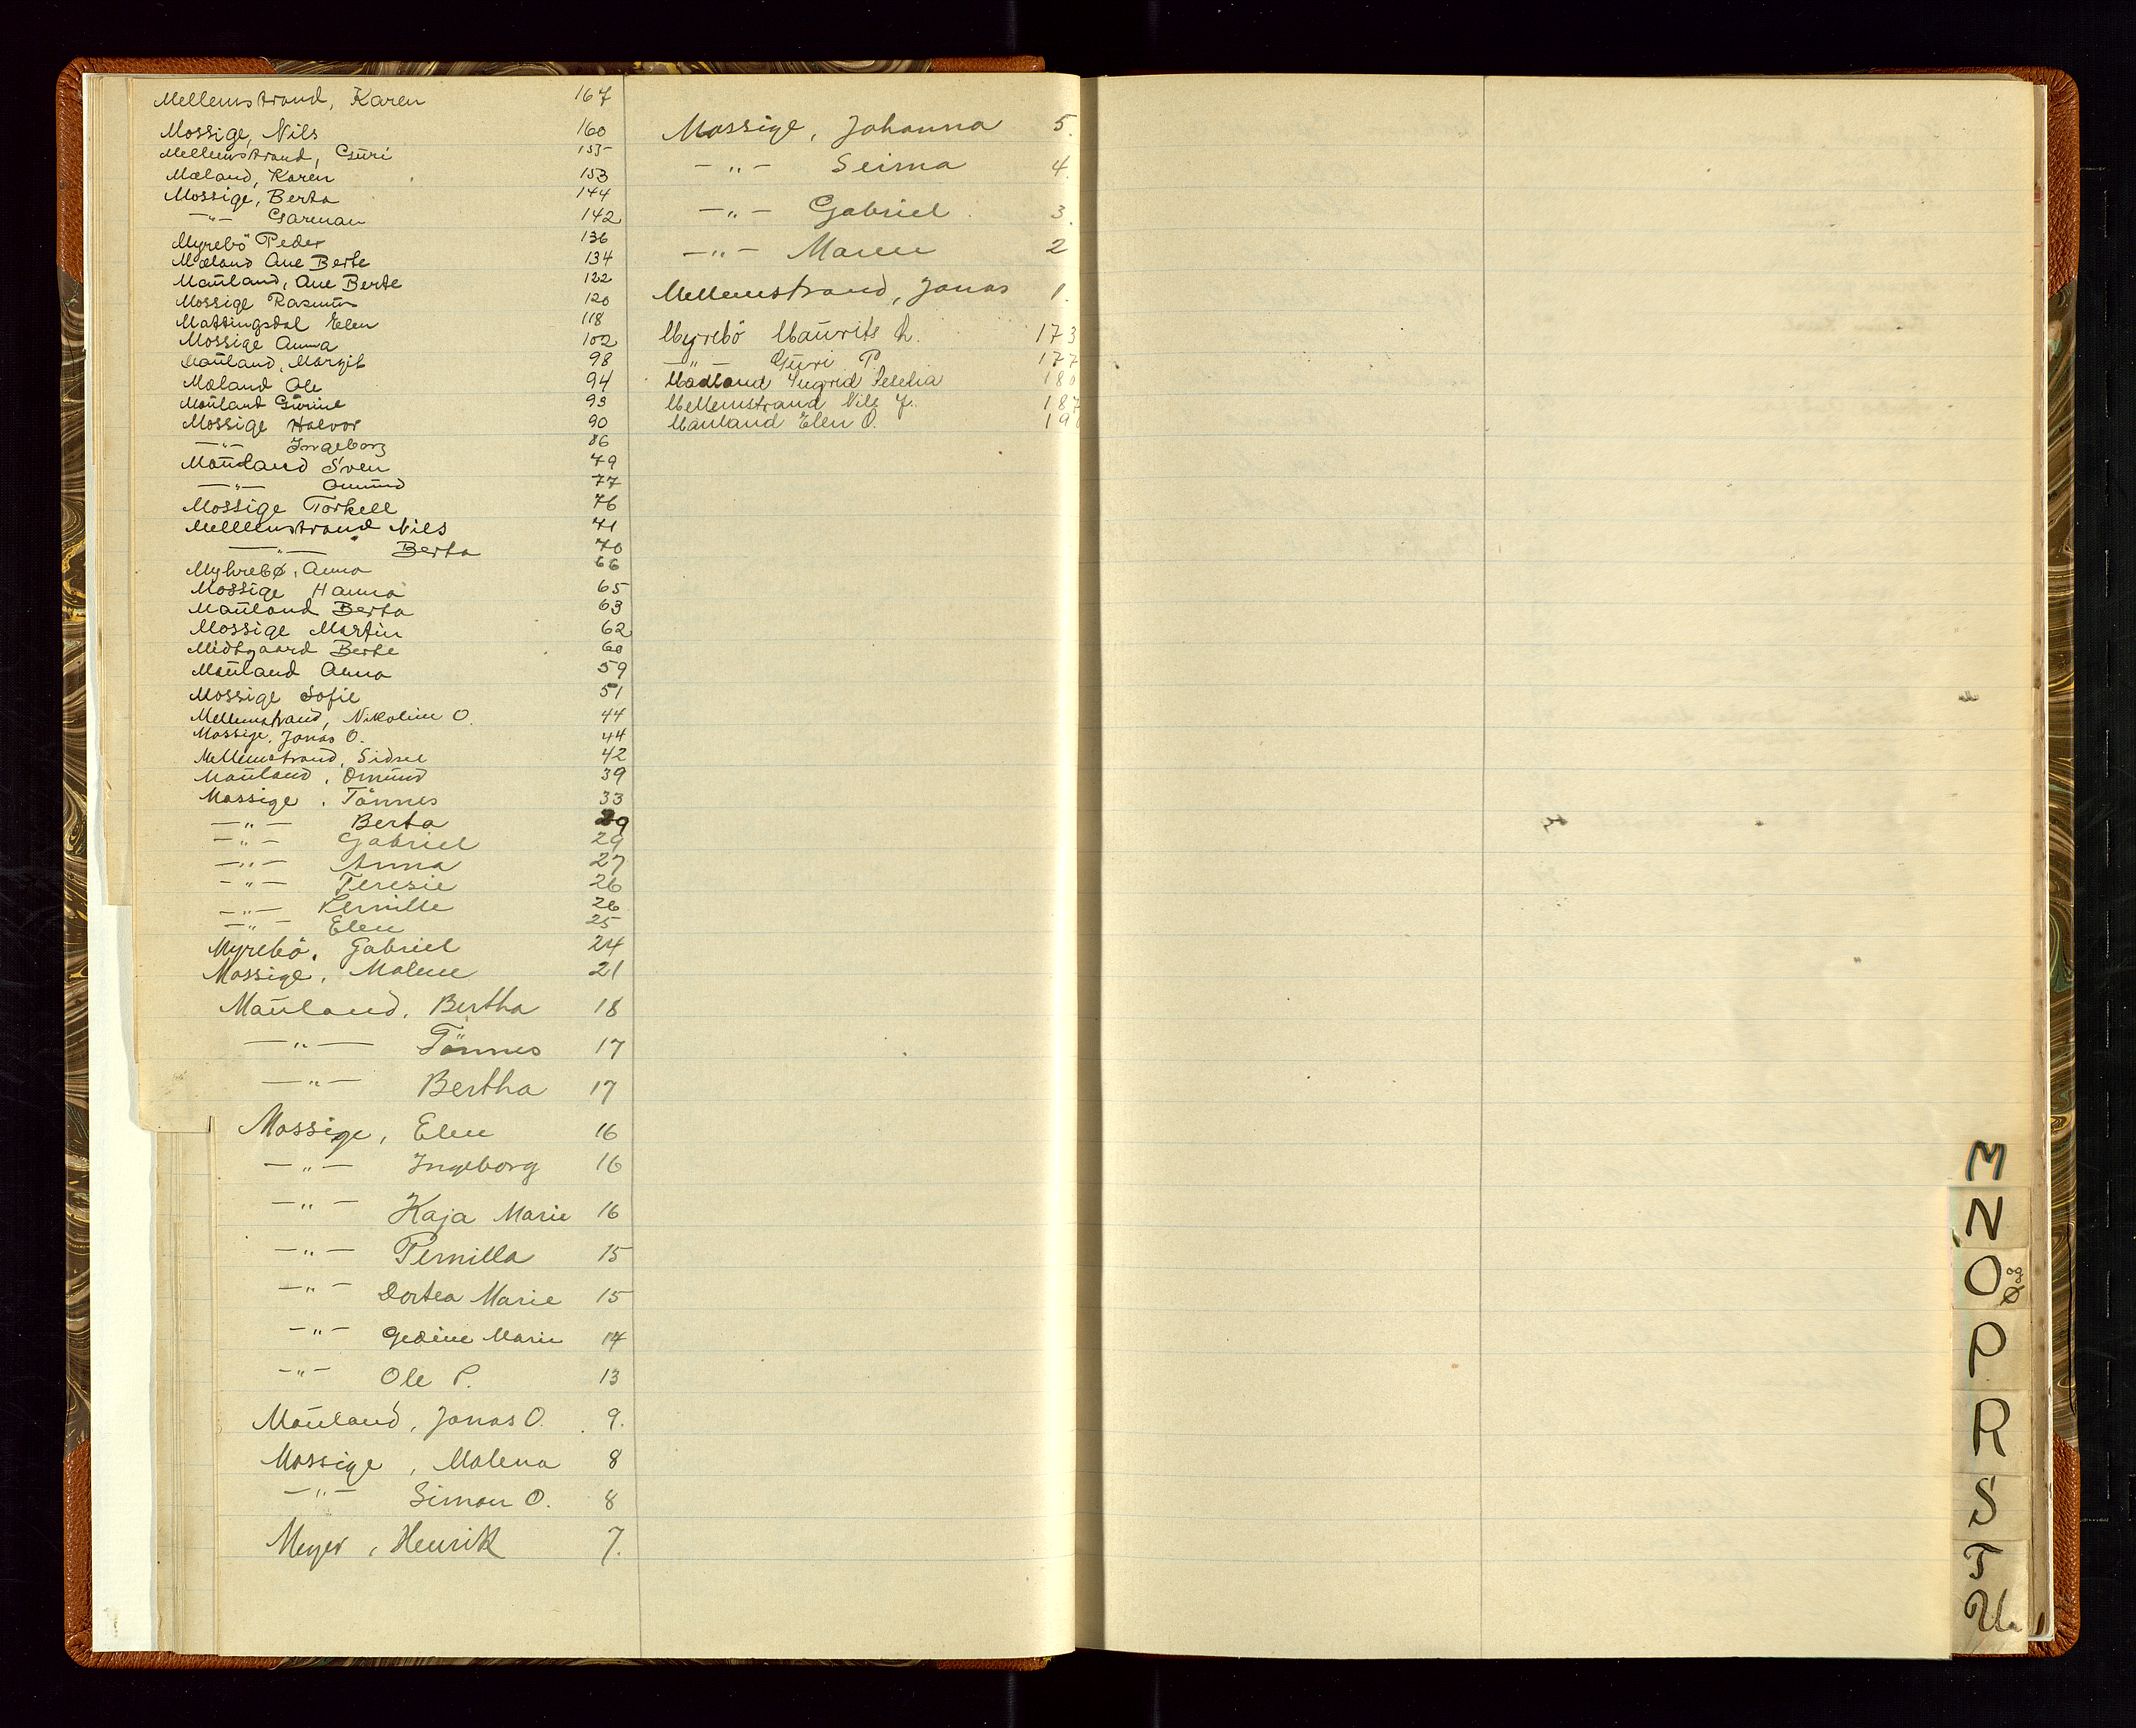 Mellemstrand, Karen 167
Mossige, Nils 160
Mellemstrand, Guri 155
Mæland, Karen 153
Mossige, Berta 144
—„— Garman 142
Myrebö Peder 136
Mæland Ane Berte 134
Mauland, Ane Berte 122
Mossige Rasmus 120
Matningsdal Elen 118
Mossige Anna 102
Mauland, Margit 98
Mæland Ole 94
Mauland Gurine 93
Mossige Halvor 90
—„— Ingeborg 86
Mauland Sven 79
—„— Omund 77
Mossige Torkell 76
Mellemstrand Nils 71
—„— Berta 70
Myhrebø, Anna 66
Mossige Hanna 65
Mauland Berta 63
Mossige Martin 62
Midtgaard Berte 60
Mauland Anna 59
Mossige Sofie 51
Mellemstrand, Nikoline O. 44
Mossige, Jonas O. 44
Mellemstrand, Sidsel 42
Mauland, Omund 39
Mossige, Tönnes 33
—„— Berta 29
—„— Gabriel 29
—„— Anna 27
—„— Teresie 26
—„— Pernille 26
—„— Elen 25
Myrebö, Gabriel 24
Mossige, Malene 21
Mauland, Bertha 18
—„— Tönnes 17
—„— Bertha 17
Mossige, Elen 16
—„— Ingeborg 16
—„— Kaja Marie 16
—„— Pernilla 15
—„— Dortea Marie 15
—„— Gedine Marie 14
—„— Ole P. 13
Mauland, Jonas O. 9.
Mossige, Malena 8
—„— Simon O. 8
Meyer, Henrik 7.
Mossige, Johanna 5.
—„— Serina 4.
—„— Gabriel 3.
—„— Maren 2
Mellemstrand, Jonas 1.
Myrebö Maurits L. 173
—„— Guri P. 177
Madland Ingrid Seselia 180
Mellemstrand Nils J. 187
Mauland Elen O. 19
M
N
O
Ø
P
R
S
T
U